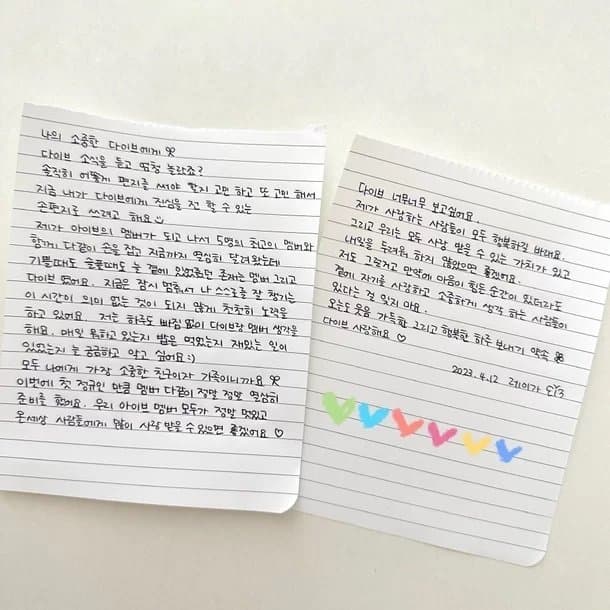 나의 소중한 다이브에게
다이브 소식을 듣고 엄청 놀랐죠?
솔직히 어떻게 편지를 써야 할지 고민 하고 또 고민 해서
지금 내가 다이브에게 진심을 전 할 수 있는
손편지를 쓰려고 해요
제가 아이브의 멤버가 되고 나서 5명의 최고인 멤버와
함께 다같이 손을 잡고 지금까지 열심히 달려왔는데
기쁠때도 슬플때도 늘 곁에 있었줬던 존재는 멤버 그리고
다이브 였어요. 지금은 잠시 멈춰서 나 스스로를 잘 챙기는
이 시간이 의미 없는 것이 되지 않게 천천히 노력을
하고 있어요. 저는 하루도 빠짐 없이 다이브랑 멤버 생각을
해요. 매일 뭐하고 있는지 밥은 먹었는지 재밌는 일이
있었는지 늘 궁금하고 알고 싶어요 :)
모두 나에게 가장 소중한 친구이자 가족이니까요
이번에 첫 정규인 만큼 멤버 다같이 정말 정말 열심히
준비를 했어요. 우리 아이브 멤버 모두가 정말 멋있고
온세상 사람들에게 많이 사랑 받을 수 있었으면 좋겠어요 ♡
다이브 너무너무 보고싶어요.
제가 사랑하는 사람들이 모두 행복하길 바래요.
그리고 우리는 모두 사랑 받을 수 있는 가치가 있고
내일을 두려워 하지 않았으면 좋겠어요.
저도 그렇고 만약에 마음이 힘든 순간이 있더라도
곁에 자기를 사랑하고 소중하게 생각 하는 사람들이
있다는 것 잊지 마요.
오늘도 웃음 가득한 그리고 행복한 하루 보내기 약속
다이브 사랑해요 ♡
2023.4.12 레이가